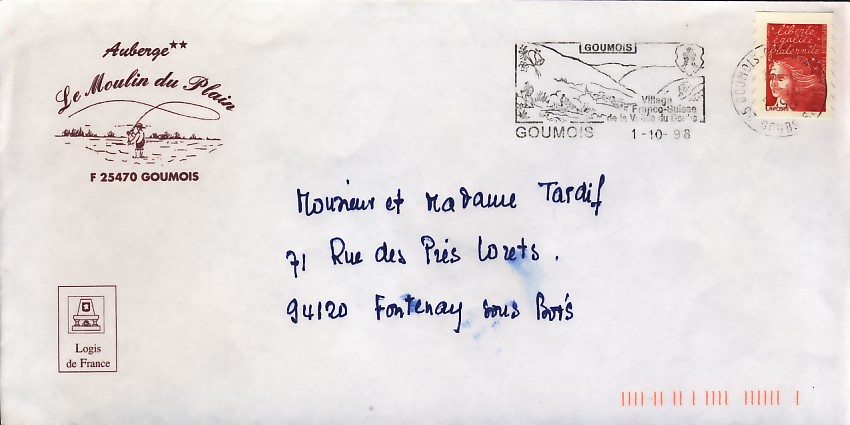 Auberge**
Le Moulin du Plain
F 25470 GOUMOIS
GOUMOIS
Village
Franco-Suisse
de la Vallée du Doubs
GOUMOIS 1-10-98
liberté
égalité
fraternité
LA POSTE
GOUMOIS
DOUBS
Monsieur et Madame Tardif
71 Rue des Prés Lorets.
94120 Fontenay sous Bois
Logis
de France